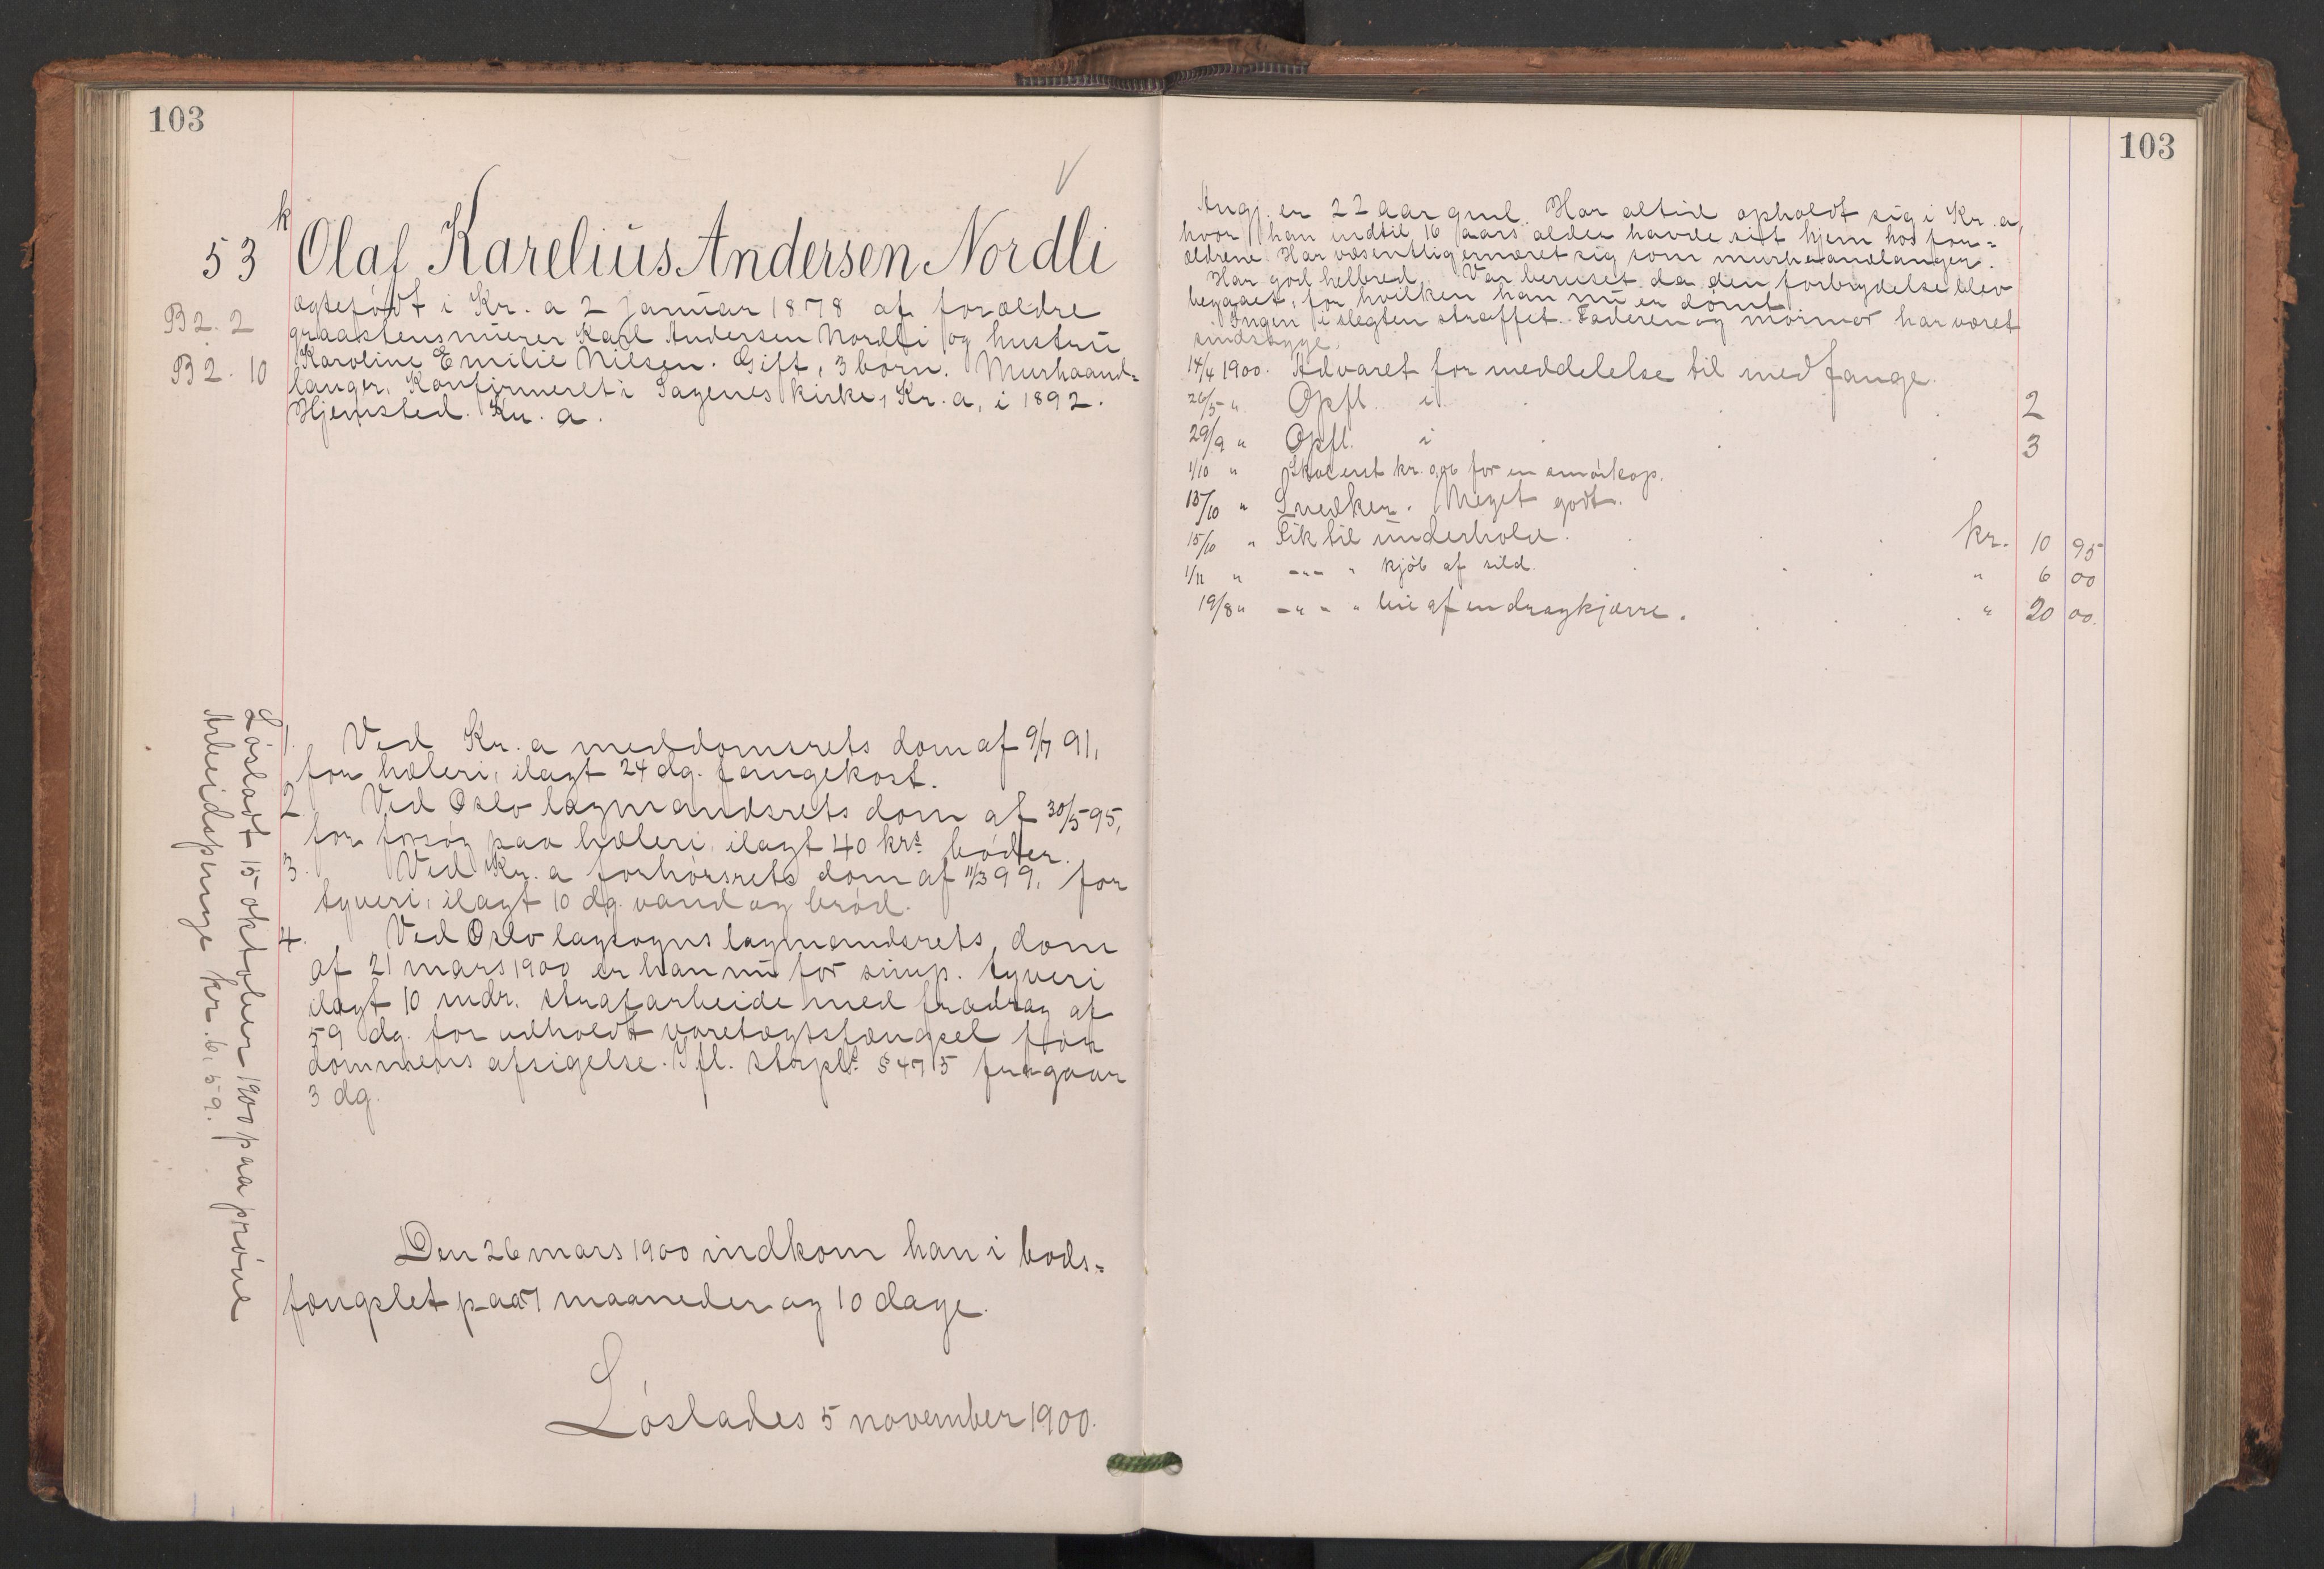 103
53 k Olaf Karelius Andersen Nordli
ægtefödt i Kr. a 2 januar 1878 af forældre
B 2. 2
graastensmurer Karl Andersen Nordli og hustru
B 2. 10
Karoline Emilie Nilsen. Gift, 3 börn. Murhaand=
langer. Konfirmeret i Sagenes kirke, Kr. a, i 1892.
Hjemsted. Kr. a.
1. Ved Kr. a meddomsrets dom af 9/7 91,
for hæleri, ilagt 24 dg. fangekost.
2. Ved Oslo lagmandsrets dom af 30/5 95,
for forsög paa hæleri, ilagt 40 krs böder.
3. Ved Kr. a forhörsrets dom af 11/3 99, for
tyveri, ilagt 10 dg. vand og bröd.
4. Ved Oslo lagsogns lagmandsrets dom
af 21 mars 1900 er han nu for simp. tyveri
ilagt 10 mdr. strafarbeide med fradrag af
59 dg. for udholdt varetægtsfængsel för
dommens afsigelse. Ifl. strpls § 475 fragaar
3 dg.
Lösladt 15 oktober 1900 paa pröve
Arbeidspenge kr. 6,59.
Den 26 mars 1900 indkom han i bods=
fængslet paa 7 maaneder og 10 dage.
Löslades 5 november 1900.
103
Angj. er 22 aar gml. Har altid opholdt sig i Kr. a,
hvor han indtil 16 aars alder havde sit hjem hos for=
ældrene. Har væsentlig ernæret sig som murhaandlanger.
Har god helbred. Var beruset da den forbrydelse blev
begaaet, for hvilken han nu er dömt.
Ingen i slegten straffet. Faderen og mormor har været
sindssyge.
14/4 1900. Advaret for meddelelse til medfange.
26/5 " Opfl. i 2
29/9 " Opfl. i 3
1/10 " for en smörkop.
15/10 " Snedker. Meget godt.
15/10 " Fik til underhold. kr. 10 95
1/11 " -"- " kjöb af sild. " 6 00
19/8 " -"- " leie af en dragkjærre. " 20 00.